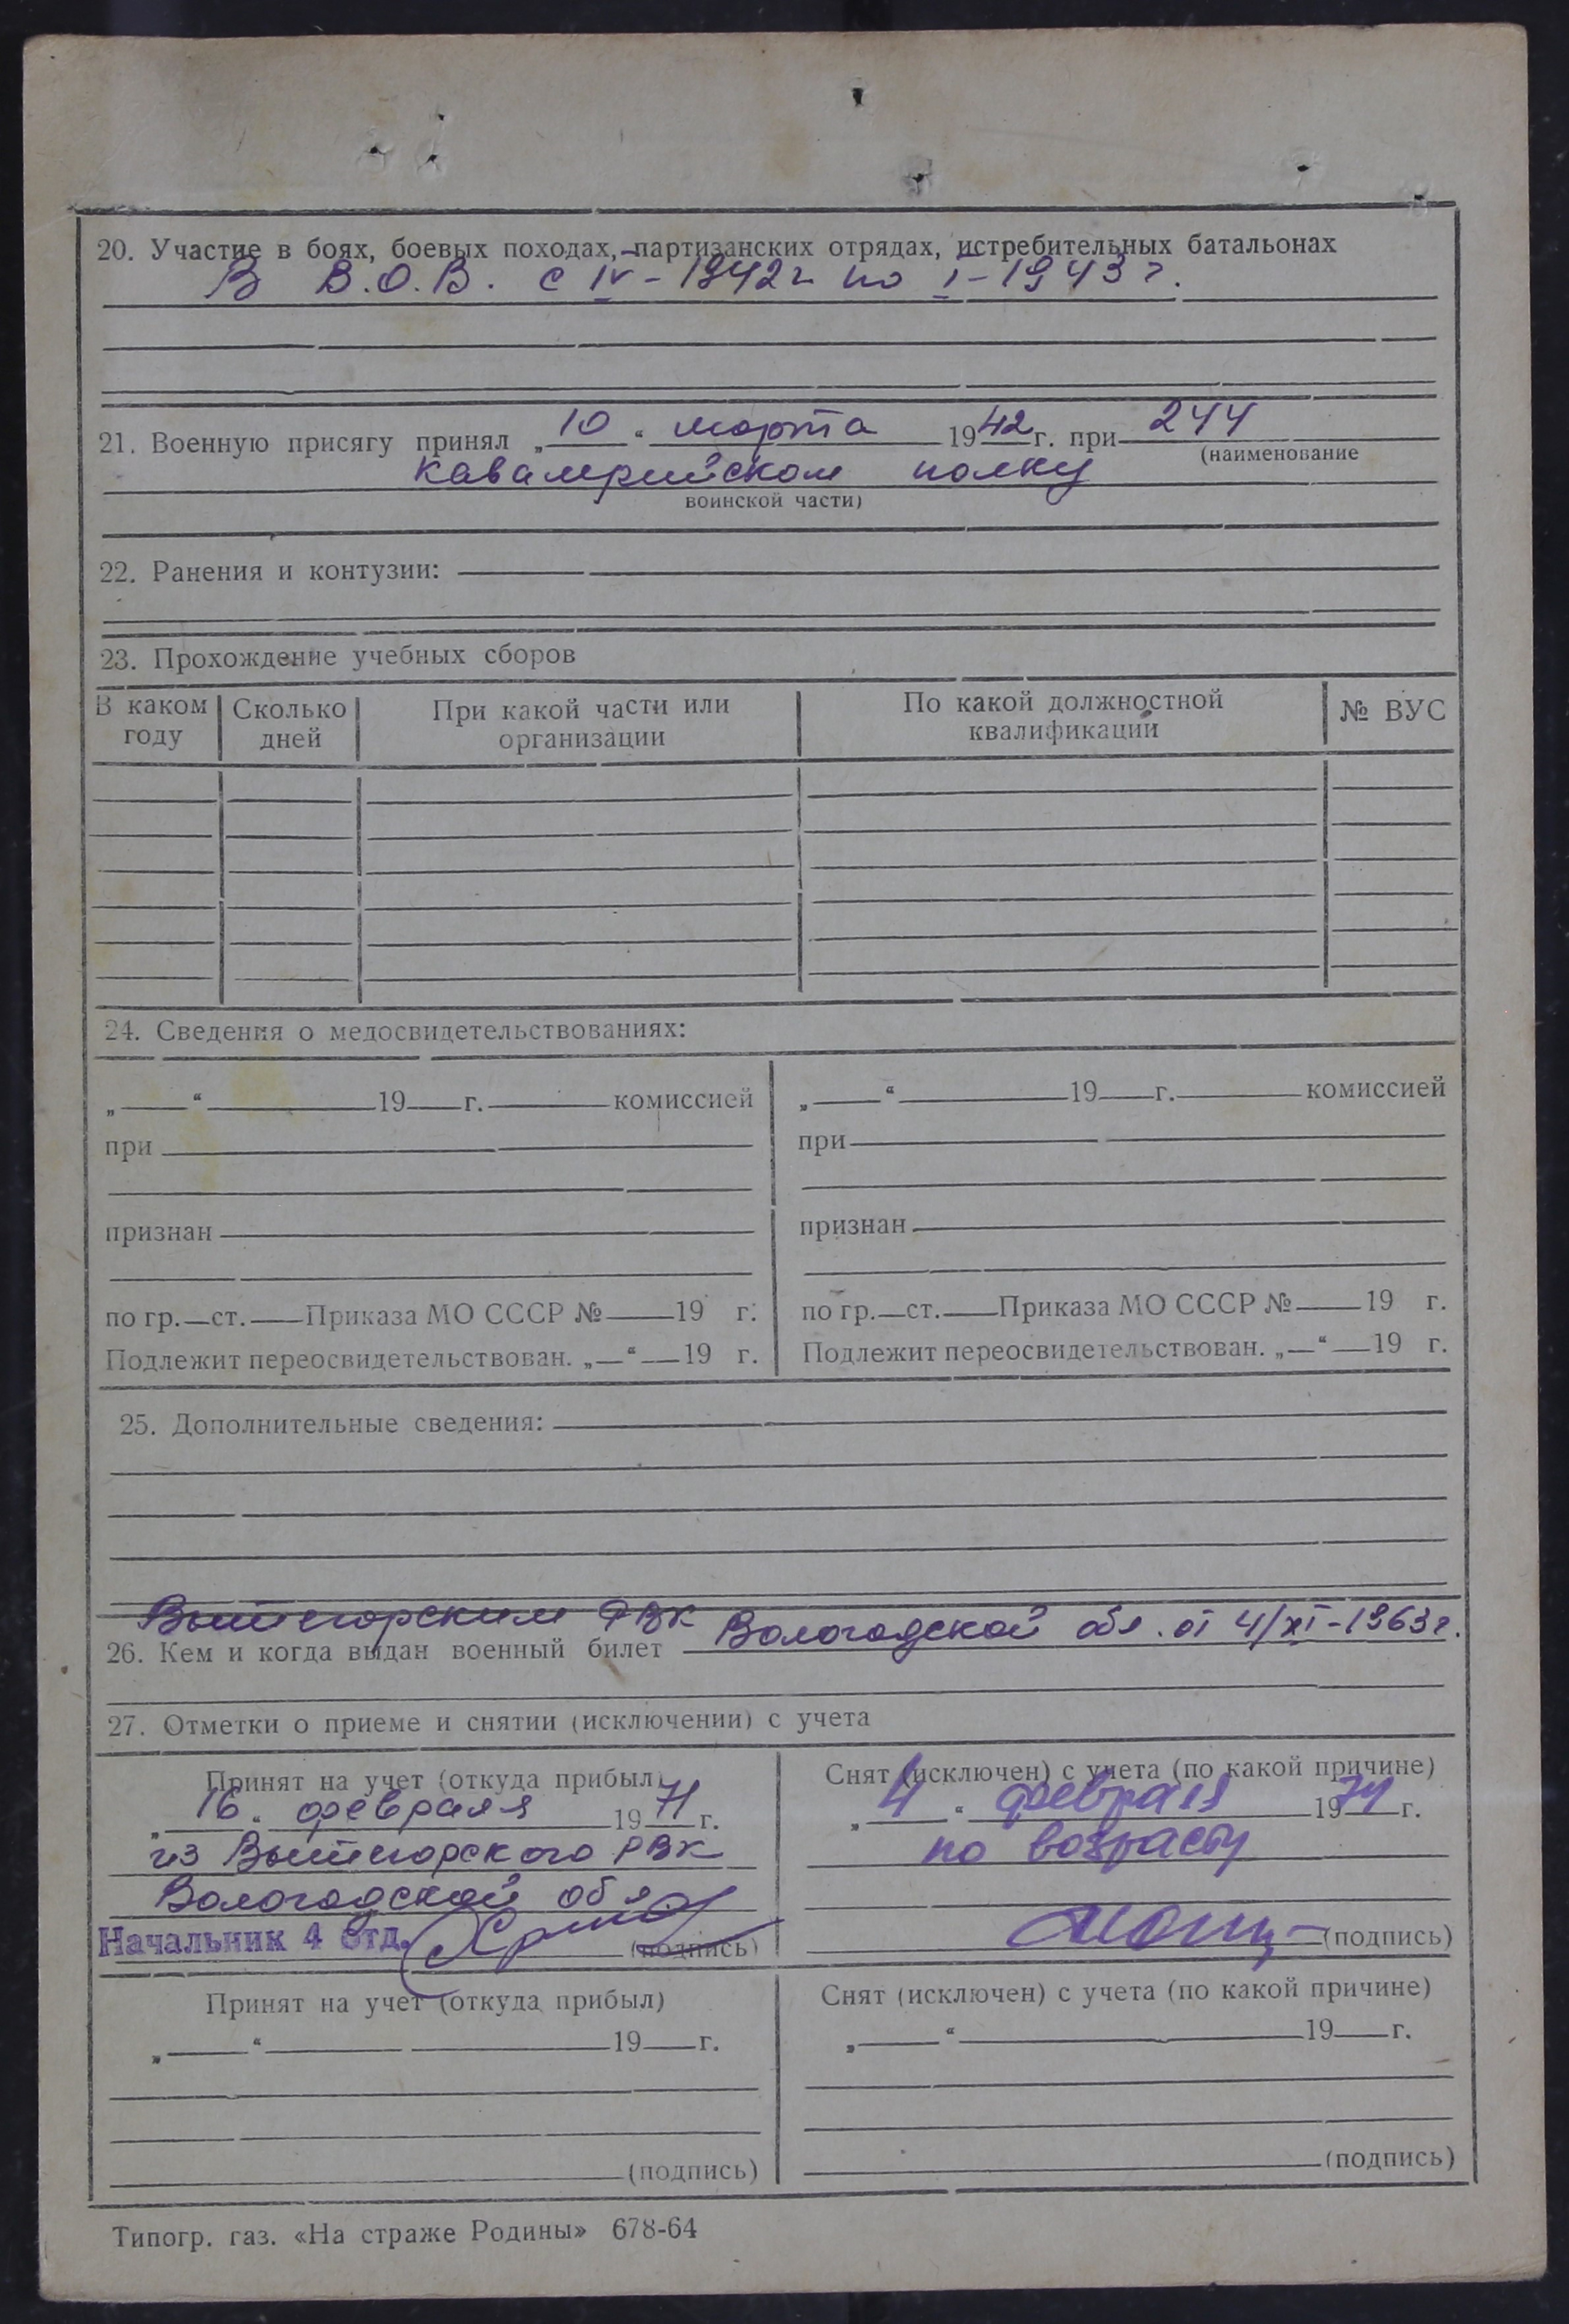 20. Участие в боях, боевых походах, партизанских отрядах, истребительных батальонах
В В.О.В. с IV-1942г по I-1943г.
21. Военную присягу принял „10“ марта 1942г. при 244
(наименование
кавалерийском полку
воинской части)
22. Ранения и контузии:
23. Прохождение учебных сборов
В каком году
Сколько дней
При какой части или организации
По какой должностной квалификации
№ ВУС
24. Сведения о медосвидетельствованиях:
„ “ 19 г. комиссией
при
признан
по гр. ст. Приказа МО СССР № 19 г.
Подлежит переосвидетельствован. „ “ 19 г.
„ “ 19 г. комиссией
при
признан
по гр. ст. Приказа МО СССР № 19 г.
Подлежит переосвидетельствован. „ “ 19 г.
25. Дополнительные сведения:
Вытегорским РВК
26. Кем и когда выдан военный билет Вологодской обл. от 4/XI-1963г.
27. Отметки о приеме и снятии (исключении) с учета
Принят на учет (откуда прибыл)
„16“ февраля 1971г.
из Вытегорского РВК
Вологодской обл
Начальник 4 отд. (подпись)
Снят (исключен) с учета (по какой причине)
„4“ февраля 1974г.
по возрасту
(подпись)
Принят на учет (откуда прибыл)
„ “ 19 г.
(подпись)
Снят (исключен) с учета (по какой причине)
„ “ 19 г.
(подпись)
Типогр. газ. «На страже Родины» 678-64